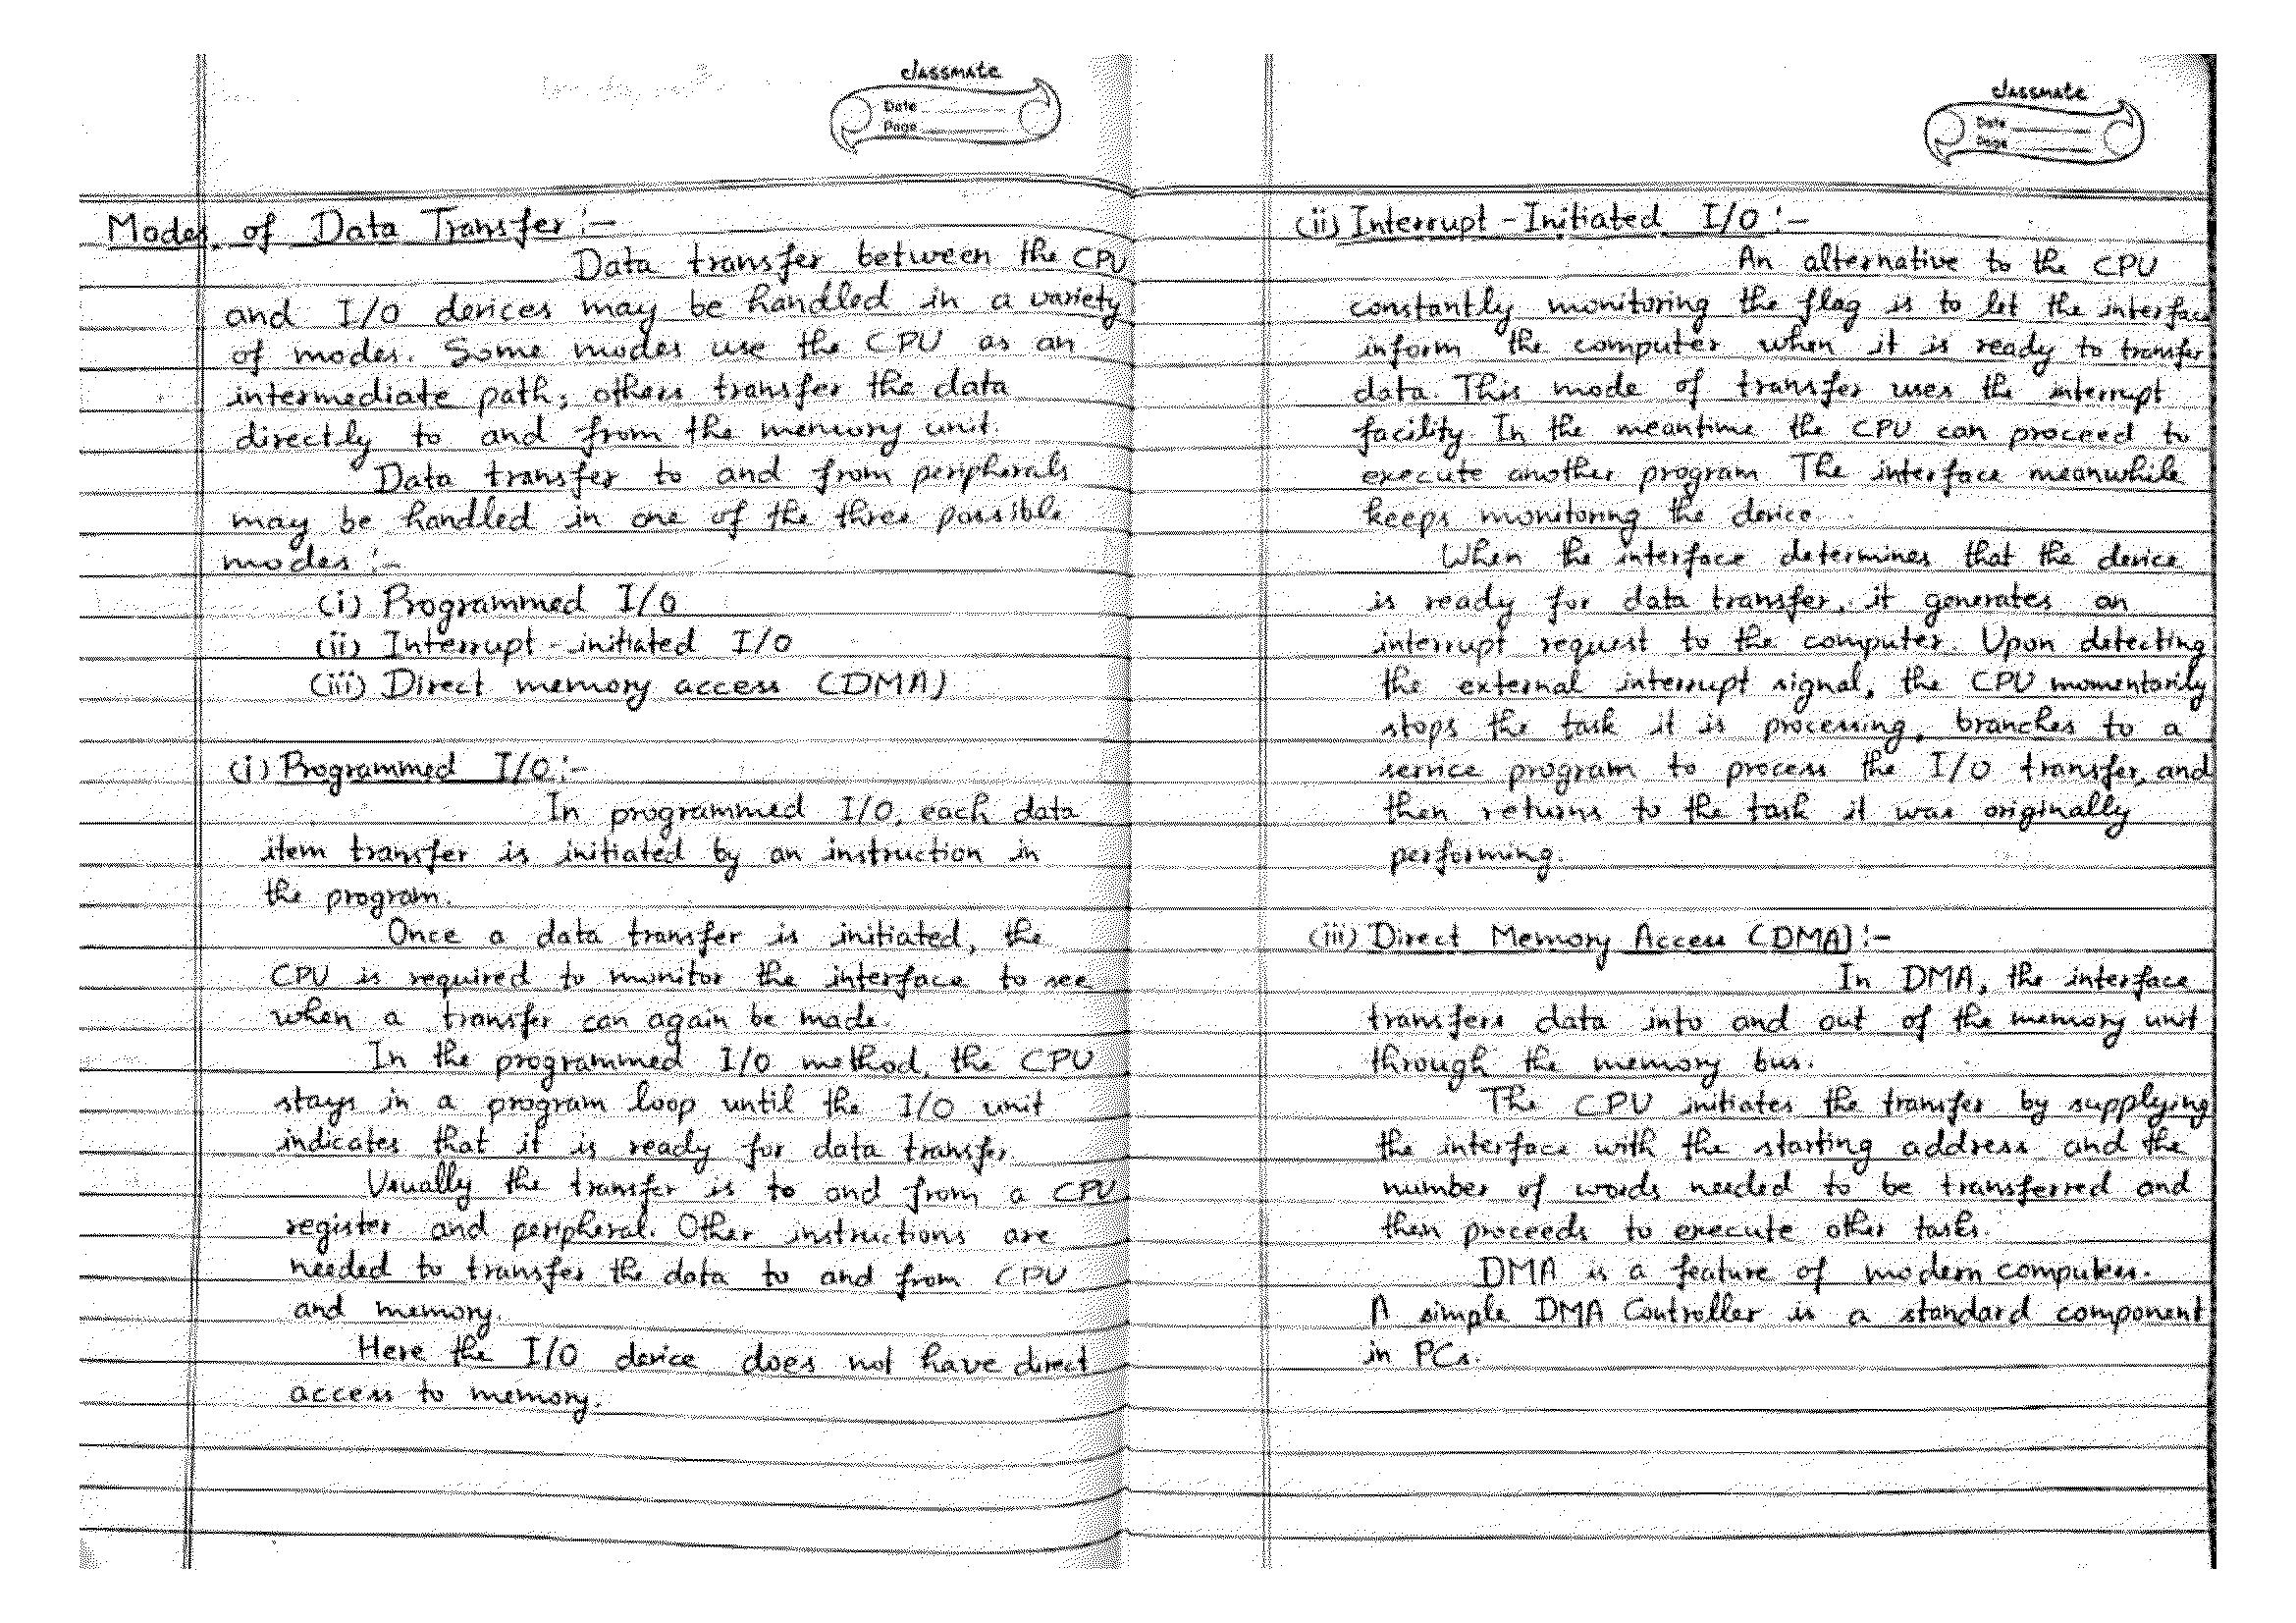 classmate
Date
Page
Modes of Data Transfer :-
Data transfer between the CPU
and I/O devices may be handled in a variety
of modes. Some modes use the CPU as an
intermediate path; others transfer the data
directly to and from the memory unit.
Data transfer to and from peripherals
may be handled in one of the three possible
modes :-
(i) Programmed I/O
(ii) Interrupt-initiated I/O
(iii) Direct memory access (DMA)
(i) Programmed I/O :-
In programmed I/O, each data
item transfer is initiated by an instruction in
the program.
Once a data transfer is initiated, the
CPU is required to monitor the interface to see
when a transfer can again be made.
In the programmed I/O method, the CPU
stays in a program loop until the I/O unit
indicates that it is ready for data transfer.
Usually the transfer is to and from a CPU
register and peripheral. Other instructions are
needed to transfer the data to and from CPU
and memory.
Here the I/O device does not have direct
access to memory.
classmate
Date
Page
(ii) Interrupt-Initiated I/O :-
An alternative to the CPU
constantly monitoring the flag is to let the interface
inform the computer when it is ready to transfer
data. This mode of transfer uses the interrupt
facility. In the meantime the CPU can proceed to
execute another program The interface meanwhile
keeps monitoring the device.
When the interface determines that the device
is ready for data transfer, it generates an
interrupt request to the computer. Upon detecting
the external interrupt signal, the CPU momentarily
stops the task it is processing, branches to a
service program to process the I/O transfer, and
then returns to the task it was originally
performing.
(iii) Direct Memory Access (DMA) :-
In DMA, the interface
transfers data into and out of the memory unit
through the memory bus.
The CPU initiates the transfer by supplying
the interface with the starting address and the
number of words needed to be transferred and
then proceeds to execute other tasks.
DMA is a feature of modern computers.
A simple DMA Controller is a standard component
in PCs.